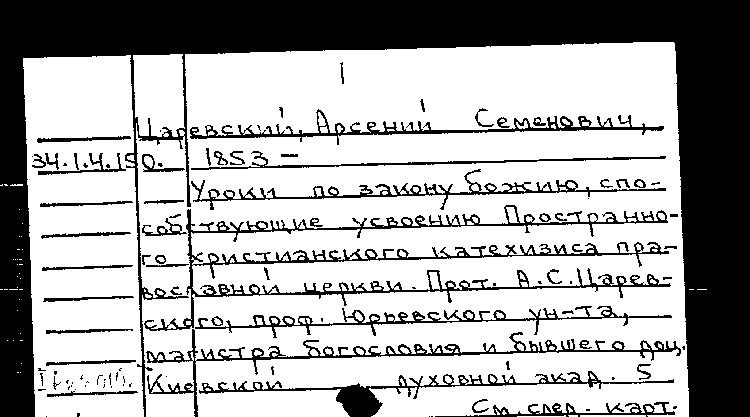 1
Царевский, Арсений Семенович,
34.1.4.150. 1853 –
Уроки по закону божию, спо-
собствующие усвоению Пространно-
го христианского катехизиса пра-
вославной церкви. Прот. А.С.Царев-
ского, проф. Юрьевского ун-та,
магистра богословия и бывшего доц.
Киевской духовной акад. 5
См. след. карт.